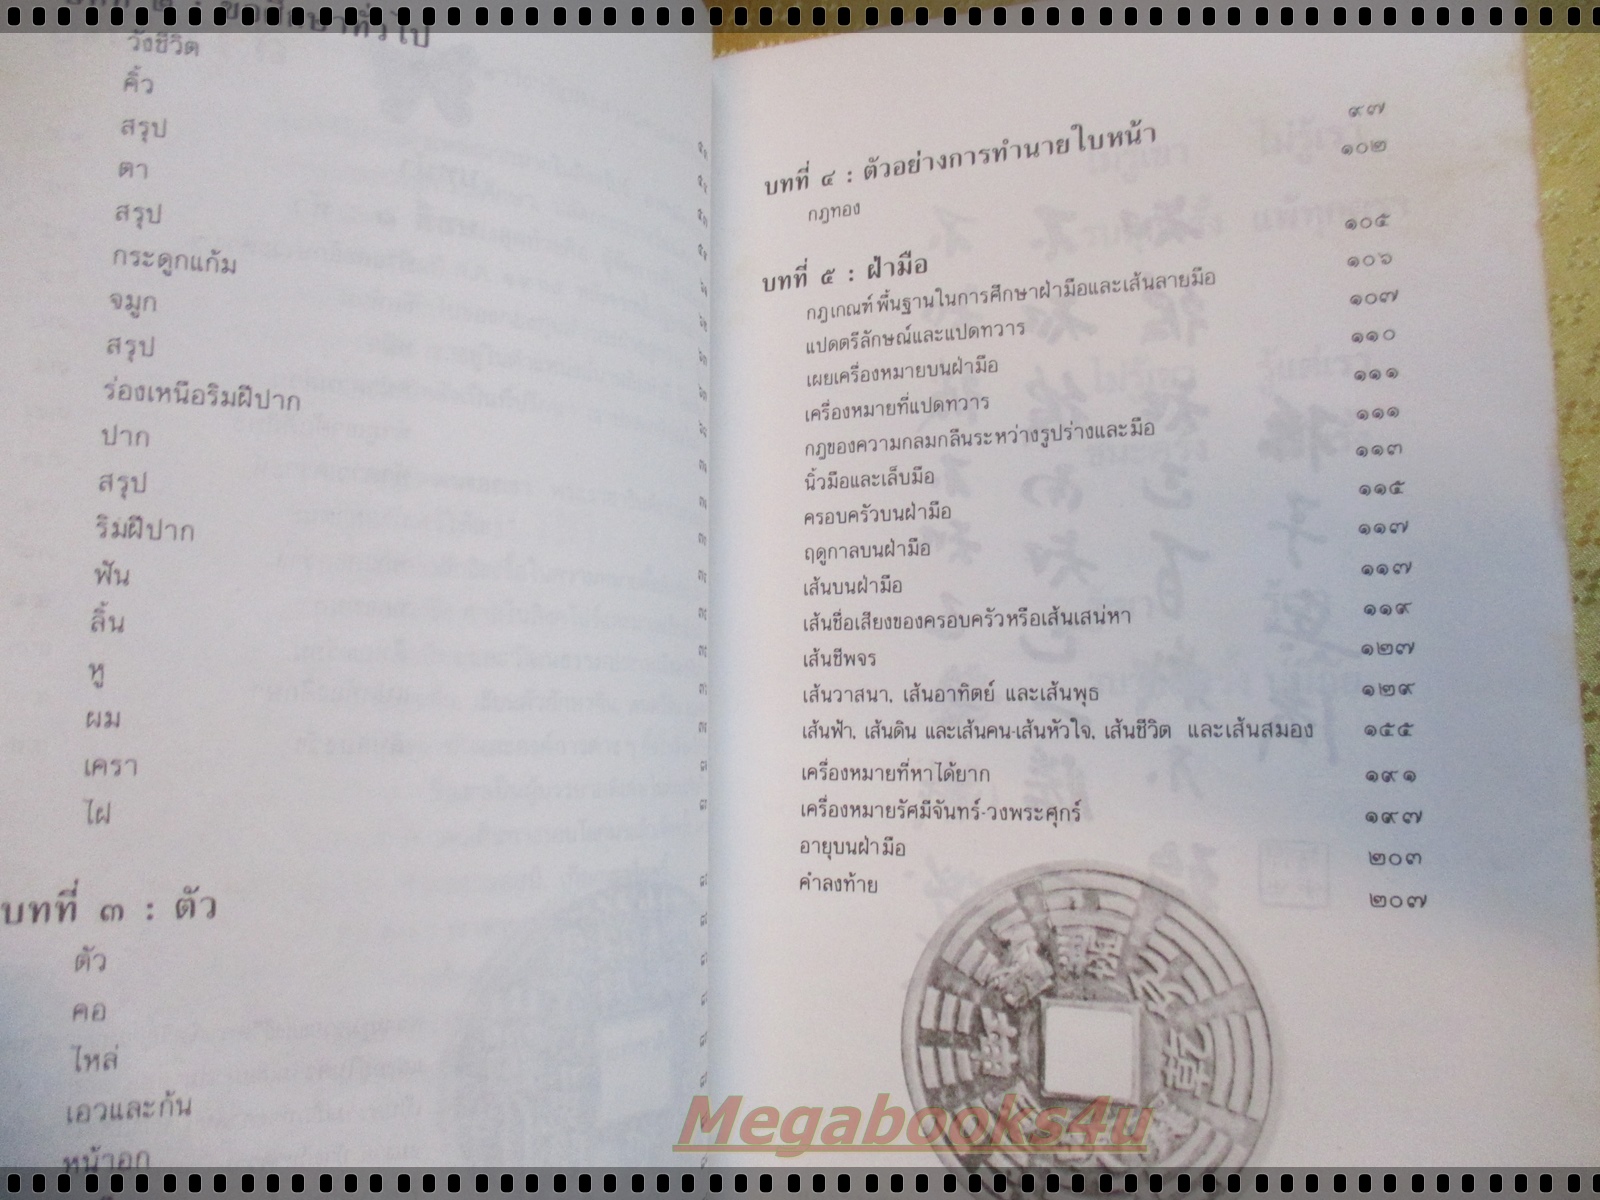 วังชีวิต
คิ้ว
สรุป
ตา
สรุป
กระดูกแก้ม
จมูก
สรุป
ร่องเหนือริมฝีปาก
ปาก
สรุป
ริมฝีปาก
ฟัน
ลิ้น
หู
ผม
เครา
ไฝ
บทที่ ๓ : ตัว
ตัว
คอ
ไหล่
เอวและก้น
หน้าอก
บทที่ ๔ : ตัวอย่างการทำนายใบหน้า ๙๗
กฎทอง ๑๐๒
บทที่ ๕ : ฝ่ามือ ๑๐๕
กฎเกณฑ์พื้นฐานในการศึกษาฝ่ามือและเส้นลายมือ ๑๐๖
แปดตรีลักษณ์และแปดทวาร ๑๐๗
เผยเครื่องหมายบนฝ่ามือ ๑๑๐
เครื่องหมายที่แปดทวาร ๑๑๑
กฎของความกลมกลืนระหว่างรูปร่างและมือ ๑๑๑
นิ้วมือและเล็บมือ ๑๑๓
ครอบครัวบนฝ่ามือ ๑๑๕
ฤดูกาลบนฝ่ามือ ๑๑๗
เส้นบนฝ่ามือ ๑๑๗
เส้นชื่อเสียงของครอบครัวหรือเส้นเสน่หา ๑๑๙
เส้นชีพจร ๑๒๗
เส้นวาสนา, เส้นอาทิตย์ และเส้นพุธ ๑๒๙
เส้นฟ้า, เส้นดิน และเส้นคน-เส้นหัวใจ, เส้นชีวิต และเส้นสมอง ๑๕๕
เครื่องหมายที่หาได้ยาก ๑๙๑
เครื่องหมายรัศมีจันทร์-วงพระศุกร์ ๑๙๗
อายุบนฝ่ามือ ๒๐๓
คำลงท้าย ๒๐๗
Megabooks4u